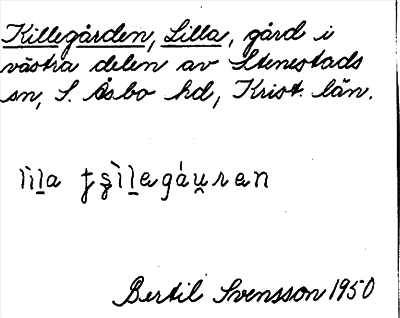 Killegården, Lilla, gård i
västra delen av Stenestads
sn, S. Åsbo hd, Krist. län.
lìl̠a ƫʂìl̠egáu̯ren
Bertil Svensson 1950